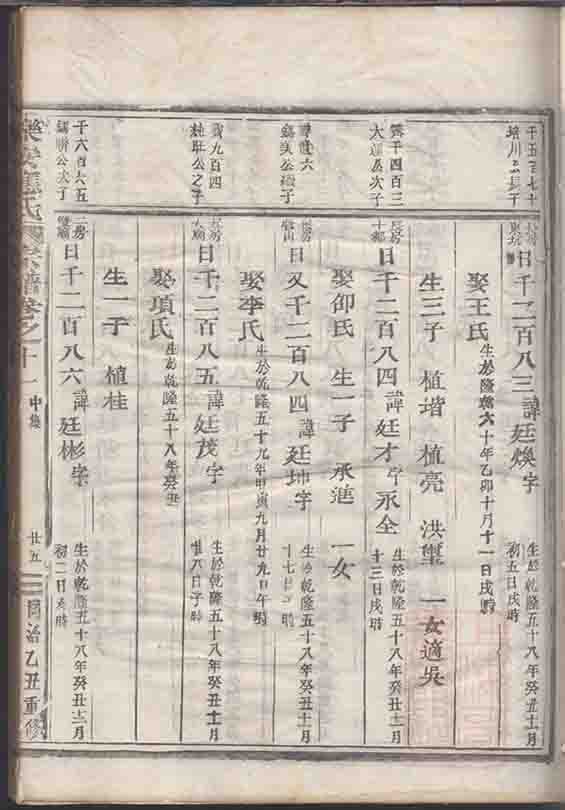 千五百七十
培川公長子
長房
日千二百八三 諱廷煥 字
生於乾隆五十八年癸丑十一月
初五日戌時
娶王氏 生於隆乾六十年乙卯十月十一日戌時
生三子 植堦 植亮 洪璽 一女適吳
千四百三
公次子
長房
日千二百八四 諱廷才 字永全
生於乾隆五十八年癸丑十一月
十三日戌時
娶邵氏 生一子 承進 一女
六
公 子
日又千二百八四 諱廷坤 字
生於乾隆五十八年癸丑十一月
娶李氏 生於乾隆五十九年甲寅九月廿九日午時
九百四
公之子
長房
日千二百八五 諱廷茂 字
生於乾隆五十八年癸丑十一月
廿八日子時
娶項氏 生於乾隆五十八年癸丑
生一子 植桂
千六百六五
公次子
二房
日千二百八六 諱廷彬 字
生於乾隆五十八年癸丑十二月
初二日 時
氏宗譜卷之十一 中集 廿五 同治乙丑重修